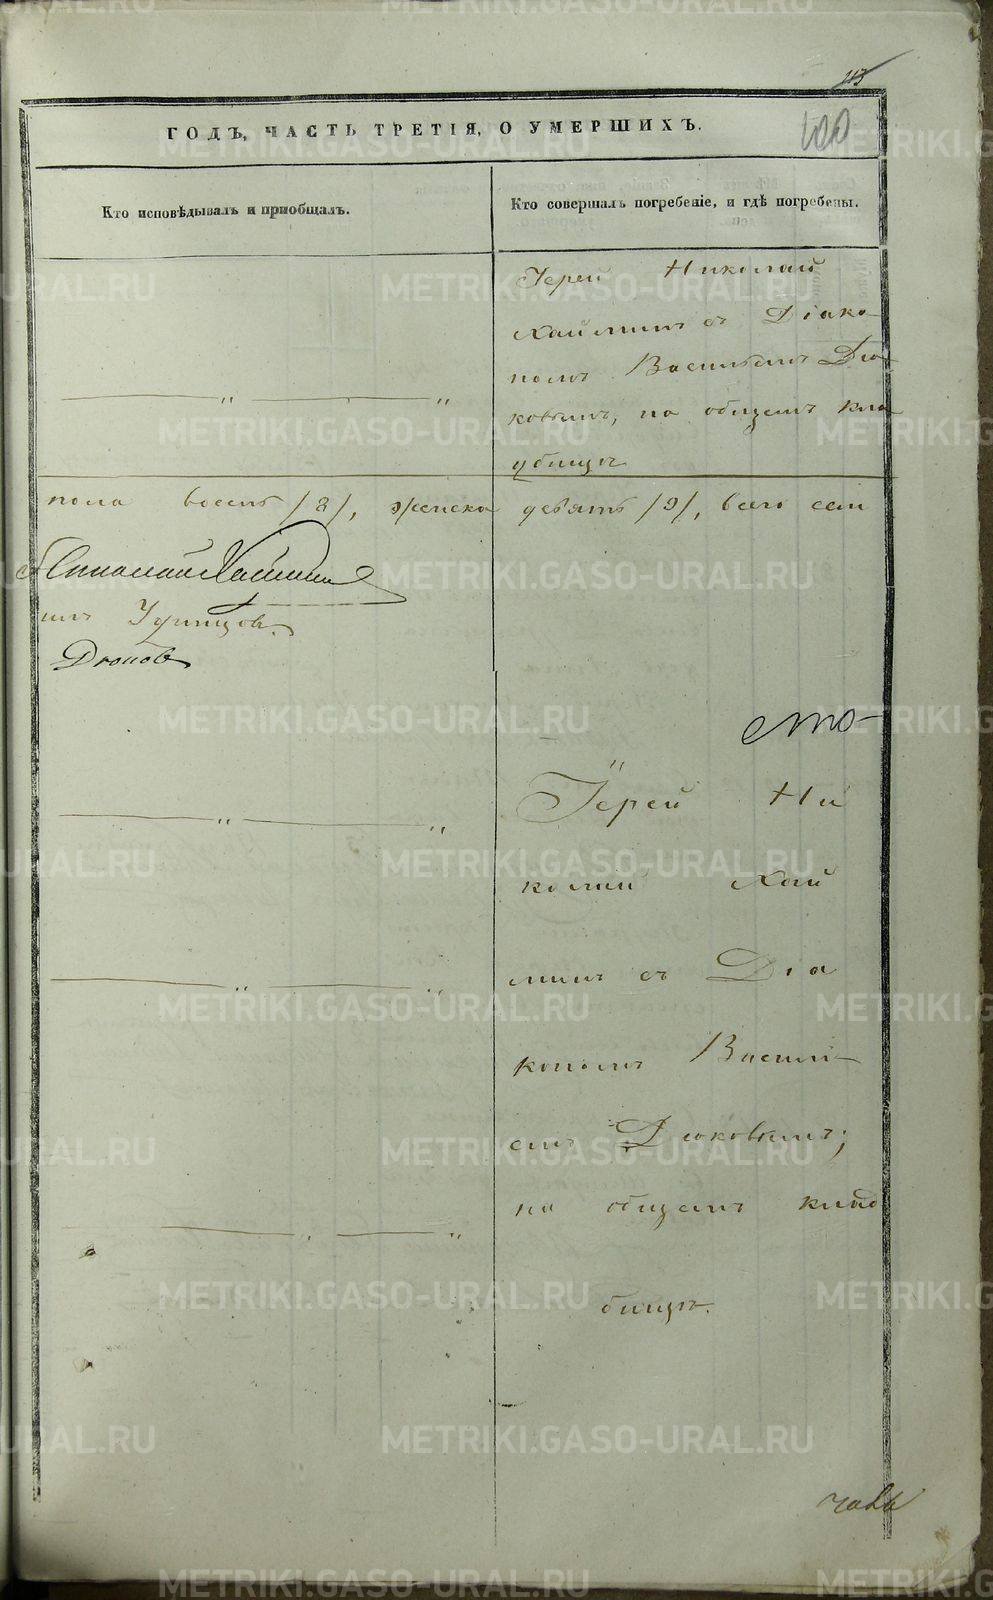 113
100
ГОДЪ, ЧАСТЬ ТРЕТІЯ, О УМЕРШИХЪ.
Кто исповѣдывалъ и пріобщалъ.
Кто совершалъ погребеніе, и гдѣ погребены.
Іерей Николай
Хаймин съ Діако
номъ Василіемъ Дю
ковымъ, на общемъ кла
дбищѣ
пола восемь /8/, женска девять /9/, всего сем
Николай Хаймин
Дюков
сто
Іерей Ни
колай Хай
минъ съ Діа
кономъ Василі
емъ Дюковымъ;
на общемъ клад
бищѣ.
METRIKI.GASO-URAL.RU